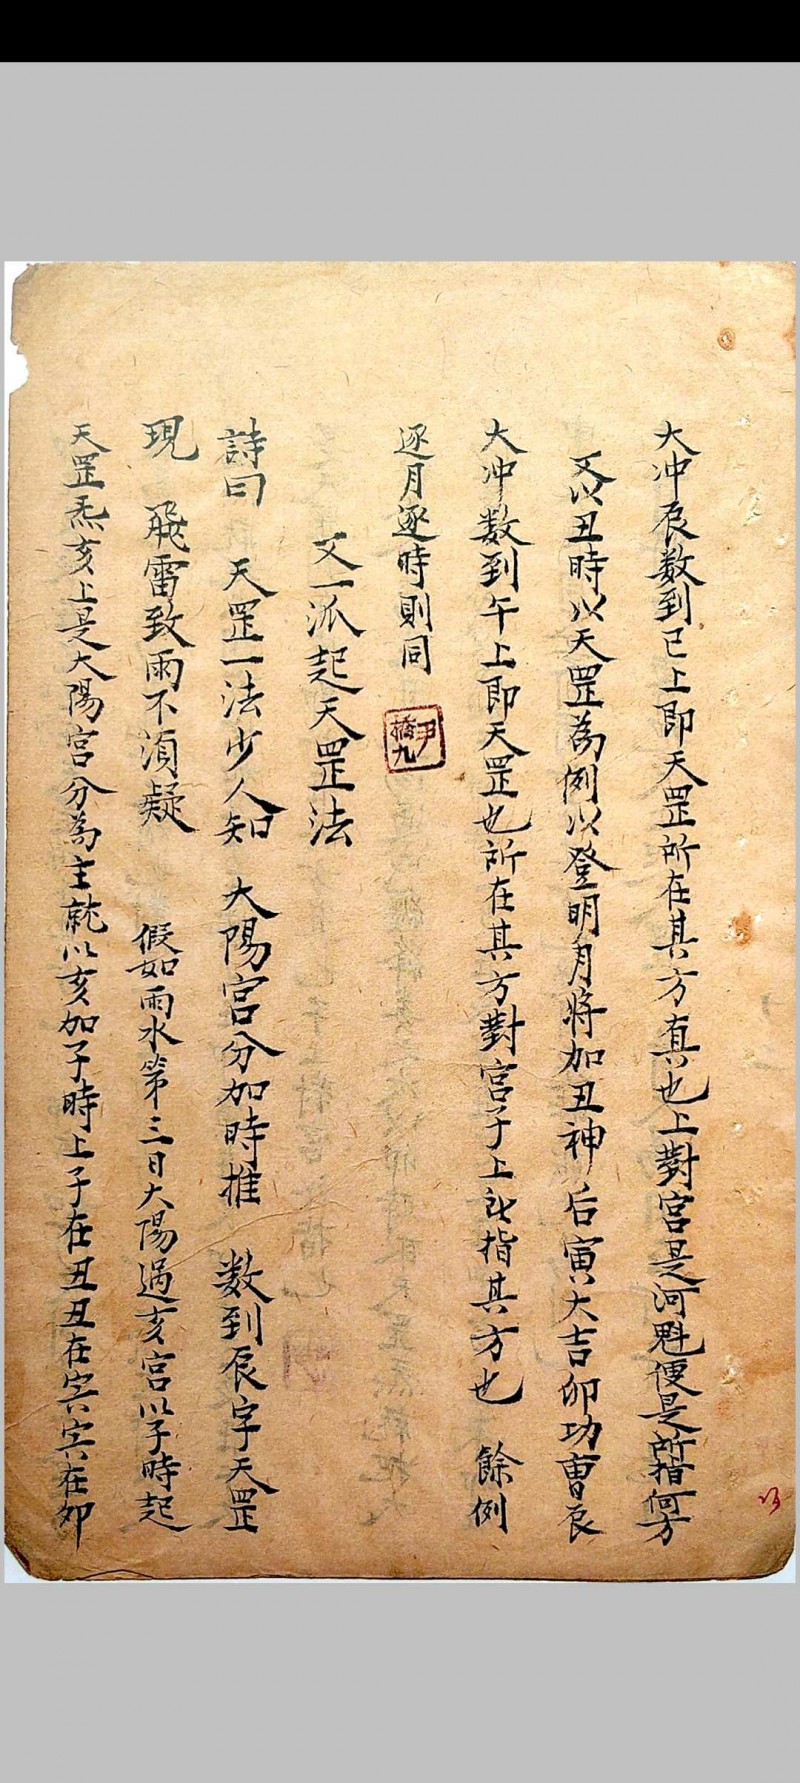 大冲辰数到巳上即天罡所在其方真也上對宮是河魁便是所指何方
又以丑時以天罡為例以登明月將加丑神后寅大吉卯功曹辰
大冲数到午上即天罡也所在其方對宮子上所指其方也 餘例
逐月逐時則同
尹橋九
又一派起天罡法
詩曰 天罡一法少人知 大陽宮分加時推 数到辰字天罡
現 飛雷致雨不須疑 假如雨水第三日大陽過亥宮以子時起
天罡炁亥上是大陽宮分為主就以亥加子時上子在丑丑在寅寅在卯